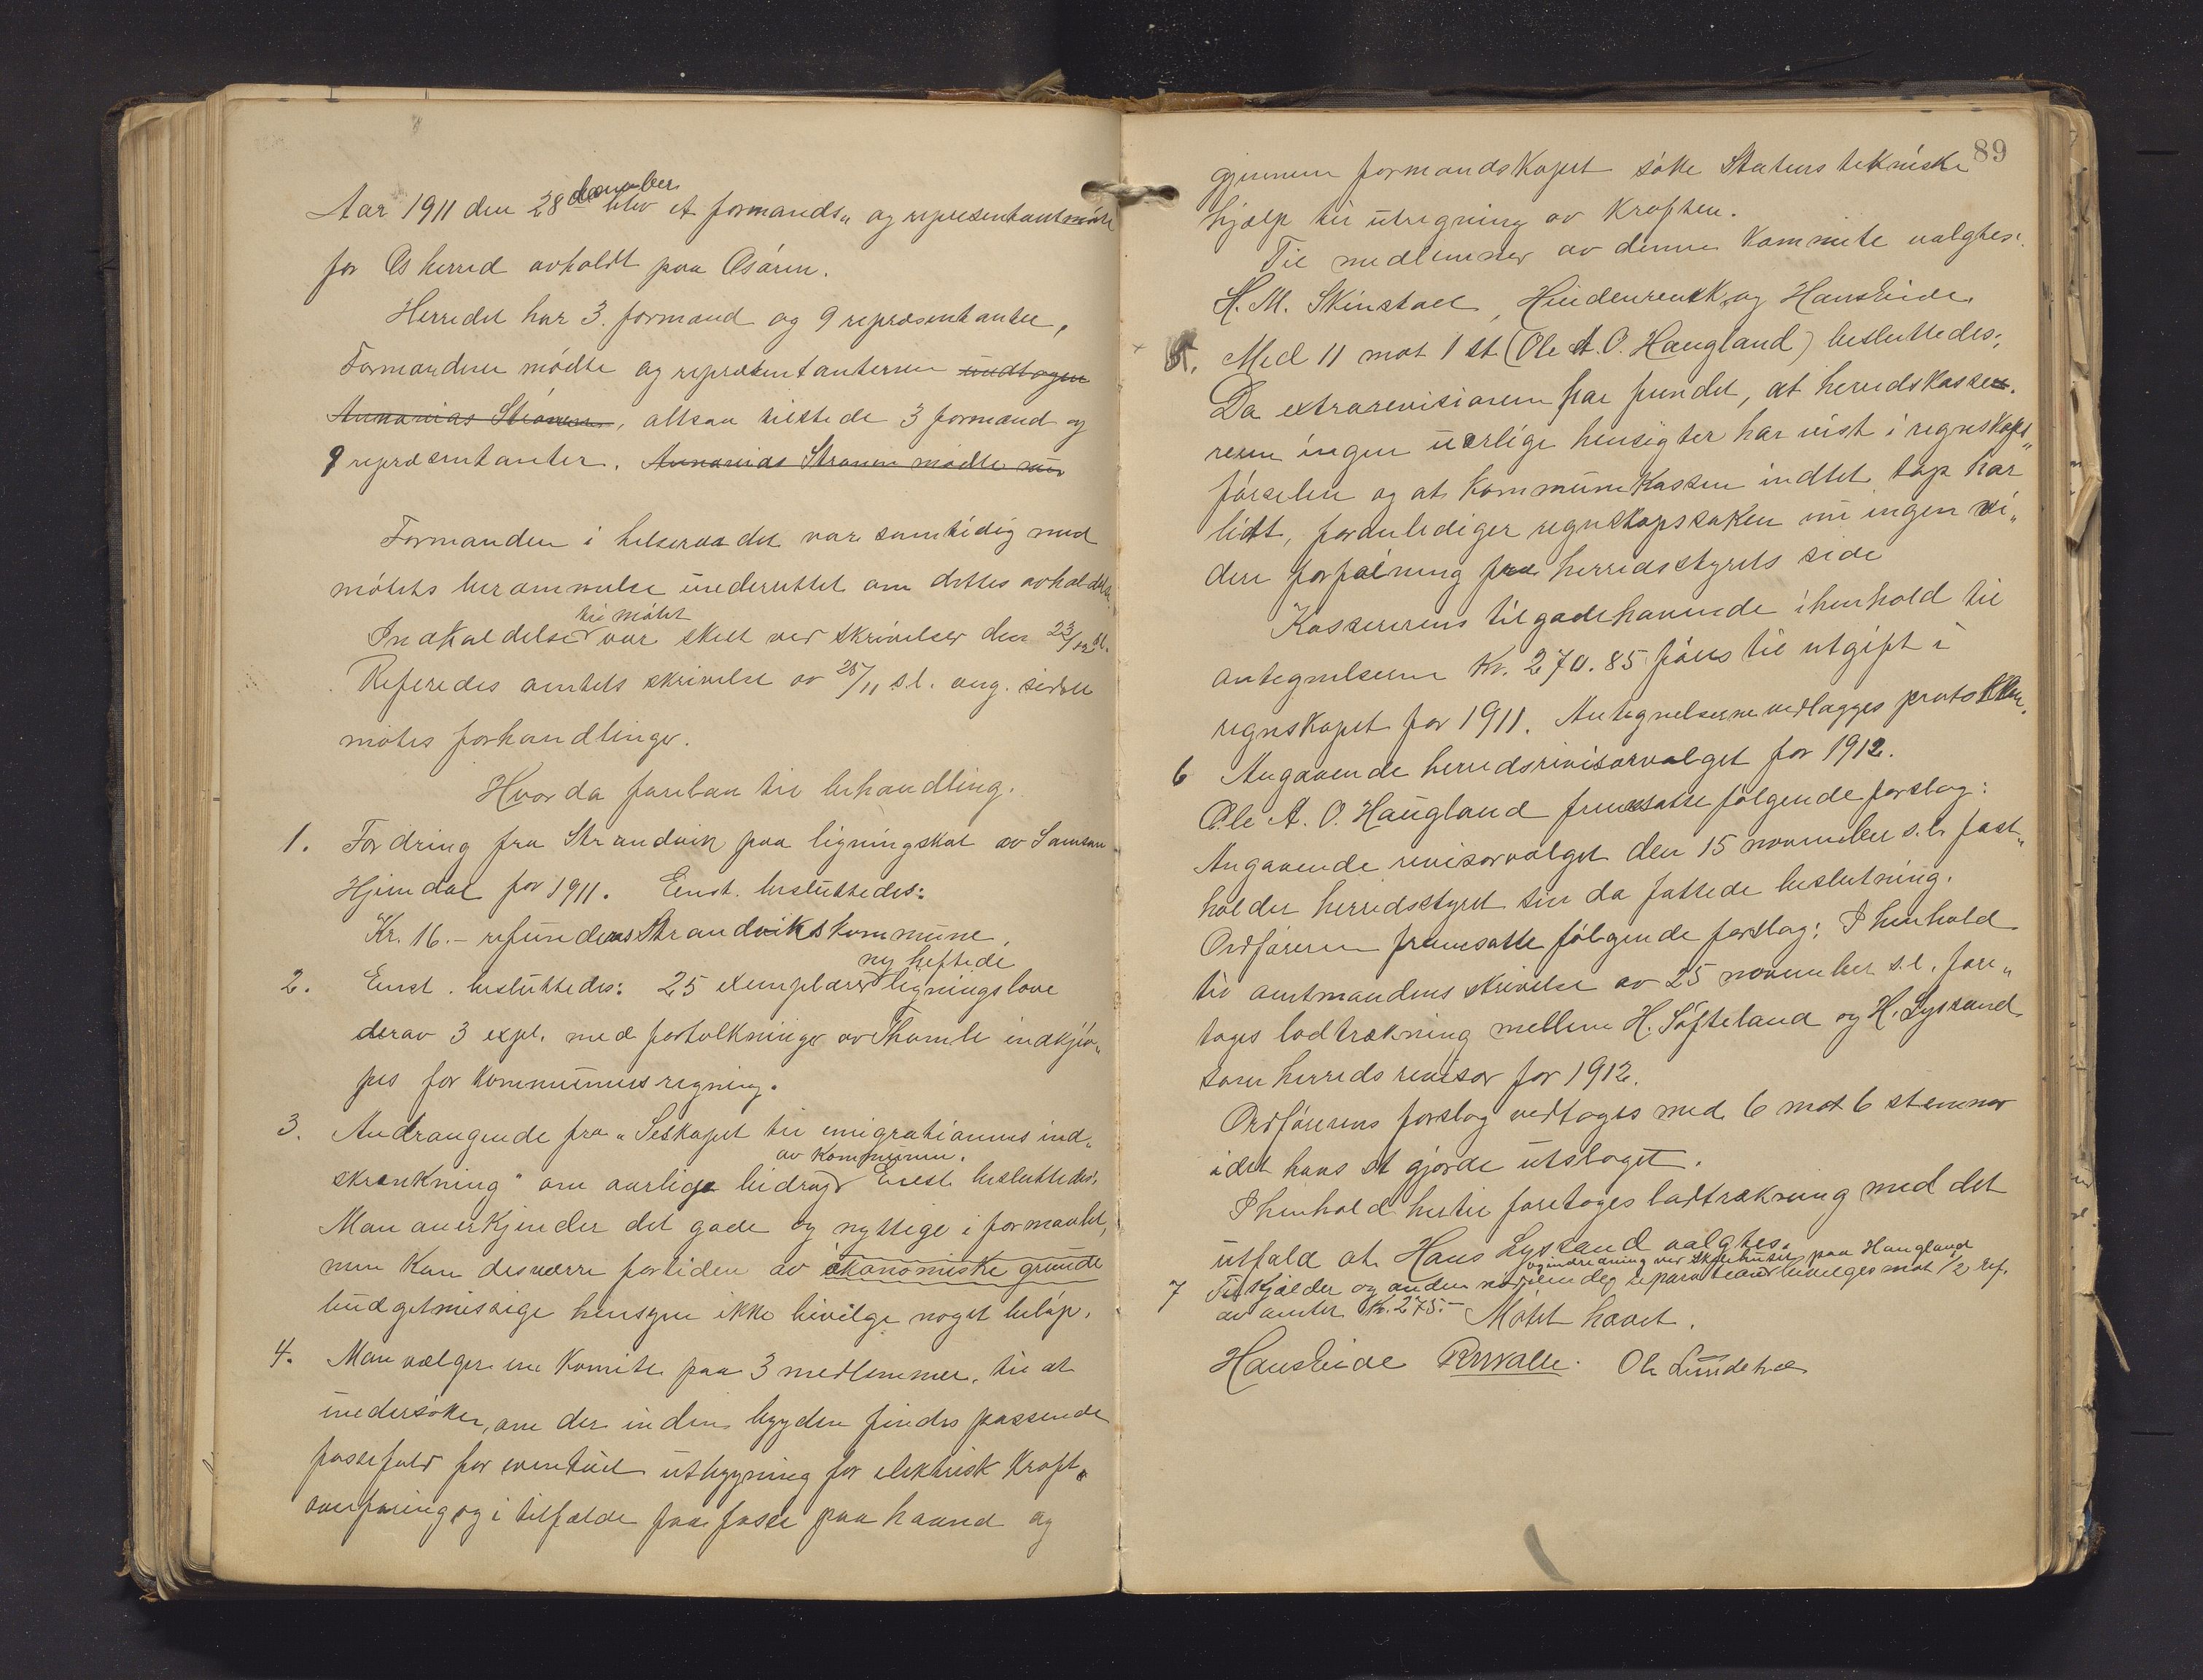 Aar 1911 den 28de december blev et formands- og representantmöte
for Os herred avholdt paa Osören.
Herredet har 3 formænd og 9 repræsentanter,
Formændene mödte og repræsentanterne undtagen
Annanias Strönen, altsaa tilstede 3 formænd og
9 repræsentanter. Annanias Strönen mödte nu
Formanden i helseraadet var samtidig med
mötets berammelse underrettet om dettes avholdelse.
Indkaldelse til mötet var skedt ved skrivelse den 23/12 sl.
Referedes amtets skrivelse av 25/11 s.l. ang. sidste
mötes forhandlinger.
Hvorda forelaa til behandling.
1. Fordring fra Strandvik paa ligningskat av Samson
Hjemdal for 1911. Enst. besluttedes:
Kr. 16.- refunderes Strandviks kommune.
2. Enst. besluttedes: 25 exemplarer ny heftede ligningslove
derav 3 expl. med fortolkninger av Thomle indkjö-
pes for kommunens regning.
3. Andragende fra "Selskapet til emigrationens ind-
skrænkning" om aarlige bidrag av kommunen. Enst. besluttedes:
Man anerkjender det gode og nyttige i formaalet,
men kan desværre fortiden av økonomiske grunde
budgetmessige hensyn ikke bevilge noget belöp.
4. Man vælger en komite paa 3 medlemmer, til at
undersöke, om der inden bygden findes passende
fossefald for eventuel utbygning for elektrisk kraft-
overföring og i tilfælde faa fosse paa haand og
89
gjennem formandskapet söke Statens tekniske
hjælp til utregning av kraften.
Til medlemmer av denne komite valgtes:
H. M. Skinstad, Hindenrenek og Hans Eide.
5. Med 11 mot 1 st. (Ole A. O. Haugland) besluttedes:
Da extrarevisionen har fundet, at herredskasse-
reren ingen uærlige hensigter har vist i regnskaps-
förselen og at kommunekassen indtet tap har
lidt, foranlediger regnskapssaken nu ingen vi-
dere forföining fra herredsstyrets side
Kassererens tilgodehavende i henhold til
antegnelserne kr. 270.85 föres til utgift i
regnskapet for 1911. Antegnelserne vedlægges protokollen.
6 Angaaende herredsrevisorvalget for 1912.
Ole A. O. Haugland fremsatte fölgende forslag:
Angaaende revisorvalget den 15 november s.l. fast-
holder herredsstyret sin da fattede beslutning.
Ordföreren fremsatte fölgende forslag: I henhold
til amtmandens skrivelse av 25 november s.l. fore-
tages lodtrækning mellem H. Söfteland og H. Lyssand
som herredsrevisor for 1912.
Ordförerens forslag vedtoges med 6 mot 6 stemmer
idet hans st. gjorde utslaget.
I henhold hertil foretoges lodtrækning med det
utfald at Hans Lyssand valgtes.
7 Til kjælder og anden nödvendig reparation og indredning ved skolehuset paa Haugland bevilges mot 1/2 ref.
av amtet kr. 275.- Mötet hævet.
Hans Eide Ole Lundetræ